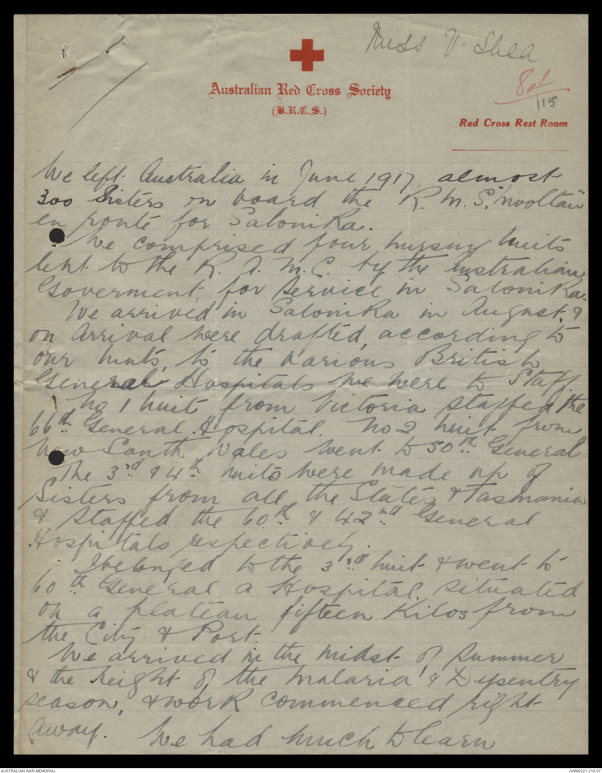 Miss V. Shea
300
Australian Red Cross Society
(B.R.C.S.)
115
Red Cross Rest Room
We left Australia in June 1917 almost
300 Sisters on board the R.M.S. "Mooltan"
en route for Salonika.
We comprised four nursing Units
lent to the R.A.M.C. by the Australian
Goverment, for Service in Salonika.
We arrived in Salonika in August &
on Arrival were drafted, according to
our Units, to the Various British
General Hospitals we were to Staff.
No 1 Unit from Victoria staffed the
66th General Hospital. No 2 Unit from
New South Wales went to 50th General
The 3rd & 4th Units were made up of
Sisters from all the States & Tasmania
& Staffed the 60th & 42nd General
Hospitals respectively.
I belonged to the 3rd Unit & went to
60th General a Hospital situated
on a plateau fifteen Kilos from
the City & Port.
We arrived in the Midst of Summer
& the height of the Malaria & Dysentry
season, & work commenced right
away. We had much to learn
AUSTRALIAN WAR MEMORIAL